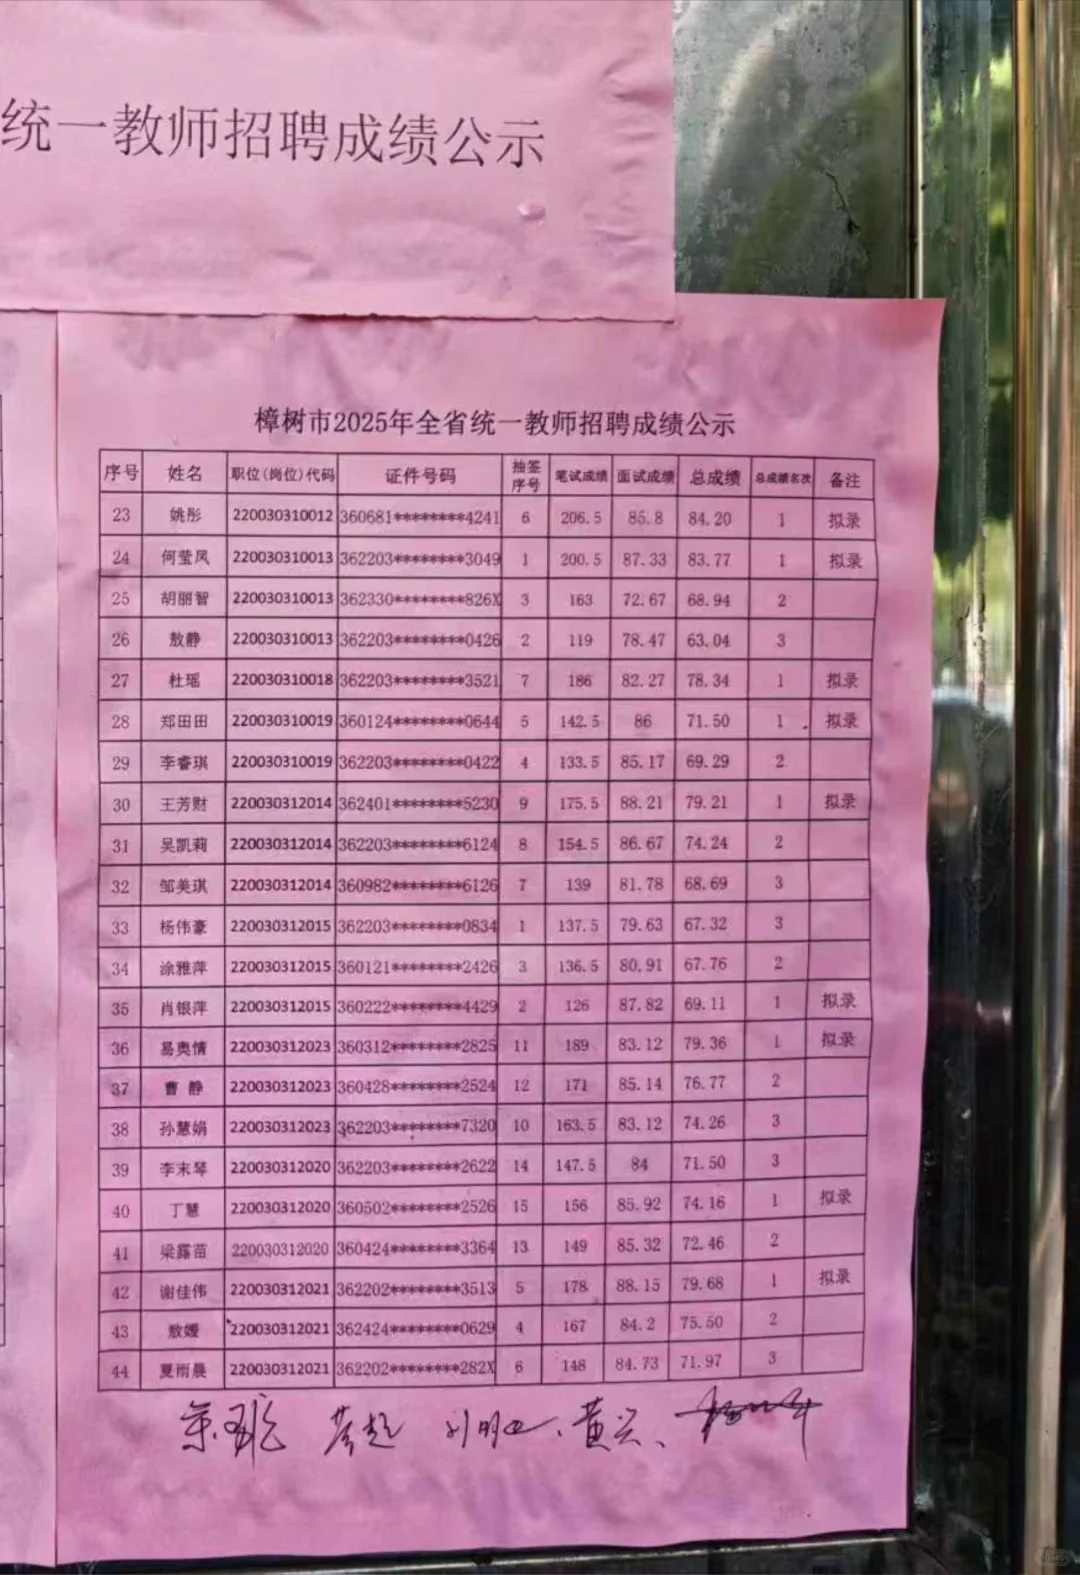 统一教师招聘成绩公示
樟树市2025年全省统一教师招聘成绩公示
序号 姓名 职位(岗位)代码 证件号码 抽签序号 笔试成绩 面试成绩 总成绩 总成绩名次 备注
23 姚彤 220030310012 360681********4241 6 206.5 85.8 84.20 1 拟录
24 何莹凤 220030310013 362203********3049 1 200.5 87.33 83.77 1 拟录
25 胡丽智 220030310013 362330********826X 3 163 72.67 68.94 2
26 敖静 220030310013 362203********0426 2 119 78.47 63.04 3
27 杜瑶 220030310018 362203********3521 7 186 82.27 78.34 1 拟录
28 郑田田 220030310019 360124********0644 5 142.5 86 71.50 1 拟录
29 李睿琪 220030310019 362203********0422 4 133.5 85.17 69.29 2
30 王芳财 220030312014 362401********5230 9 175.5 88.21 79.21 1 拟录
31 吴凯莉 220030312014 362203********6124 8 154.5 86.67 74.24 2
32 邹美琪 220030312014 360982********6126 7 139 81.78 68.69 3
33 杨伟豪 220030312015 362203********0834 1 137.5 79.63 67.32 3
34 涂雅萍 220030312015 360121********2426 3 136.5 80.91 67.76 2
35 肖银萍 220030312015 360222********4429 2 126 87.82 69.11 1 拟录
36 易奥情 220030312023 360312********2825 11 189 83.12 79.36 1 拟录
37 曹 静 220030312023 360428********2524 12 171 85.14 76.77 2
38 孙慧娟 220030312023 362203********7320 10 163.5 83.12 74.26 3
39 李末琴 220030312020 362203********2622 14 147.5 84 71.50 3
40 丁慧 220030312020 360502********2526 15 156 85.92 74.16 1 拟录
41 梁露苗 220030312020 360424********3364 13 149 85.32 72.46 2
42 谢佳伟 220030312021 362202********3513 5 178 88.15 79.68 1 拟录
43 敖媛 220030312021 362424********0629 4 167 84.2 75.50 2
44 夏雨晨 220030312021 362202********282X 6 148 84.73 71.97 3
黄兴、